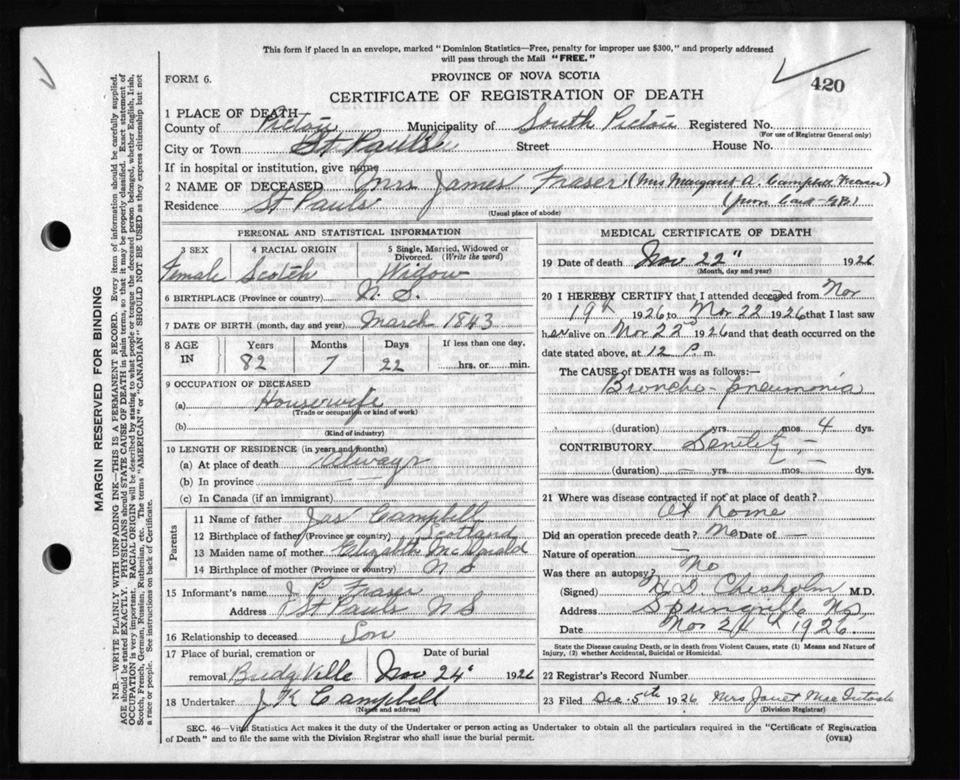 This form if placed in an envelope, marked "Dominion Statistics—Free, penalty for improper use $300," and properly addressed
will pass through the Mail "FREE."
FORM 6.
PROVINCE OF NOVA SCOTIA
420
CERTIFICATE OF REGISTRATION OF DEATH
1 PLACE OF DEATH
County of Pictou Municipality of South Pictou Registered No.
(For use of Registrar General only)
City or Town St Pauls Street House No.
If in hospital or institution, give name
2 NAME OF DECEASED Mrs James Fraser (Mrs Margaret A. Campbell Fraser)
Residence St Pauls (from Card
(Usual place of abode)
PERSONAL AND STATISTICAL INFORMATION
3 SEX 4 RACIAL ORIGIN 5 Single, Married, Widowed or Divorced. (Write the word)
Female Scotch Widow
6 BIRTHPLACE (Province or country) N. S.
7 DATE OF BIRTH (month, day and year) March 1843
8 AGE IN Years Months Days If less than one day.
82 7 22 hrs. or min.
9 OCCUPATION OF DECEASED
(a) Housewife
(Trade or occupation or kind of work)
(b)
(Kind of industry)
10 LENGTH OF RESIDENCE (in years and months)
(a) At place of death Always
(b) In province
(c) In Canada (if an immigrant)
Parents
11 Name of father Jas Campbell
12 Birthplace of father (Province or country) Scotland
13 Maiden name of mother Elizabeth McDonald
14 Birthplace of mother (Province or country) N S
15 Informant's name J P Fraser
Address St Pauls N S
16 Relationship to deceased Son
17 Place of burial, cremation or removal Date of burial
Bridgeville Nov 24" 1926
18 Undertaker J K Campbell
(Name and address)
MEDICAL CERTIFICATE OF DEATH
19 Date of death Nov 22" 1926
(Month, day and year)
20 I HEREBY CERTIFY that I attended deceased from Nov
19th 1926 to Nov 22 1926 that I last saw
her alive on Nov 22 1926 and that death occurred on the
date stated above, at 12 P. m.
The CAUSE of DEATH was as follows:—
Broncho-pneumonia
(duration) yrs. mos. 4 dys.
CONTRIBUTORY Senility —
(duration) — yrs. — mos. — dys.
21 Where was disease contracted if not at place of death?
At home
Did an operation precede death? No Date of —
Nature of operation —
Was there an autopsy? No
(Signed) Chisholm M.D.
Address Springville N.S.
Date Nov 24th 1926
State the Disease causing Death, or in death from Violent Causes, state (1) Means and Nature of
Injury, (2) whether Accidental, Suicidal or Homicidal.
22 Registrar's Record Number
23 Filed Dec. 5th 1926 Mrs Janet MacIntosh
(Division Registrar)
SEC. 46—Vital Statistics Act makes it the duty of the Undertaker or person acting as Undertaker to obtain all the particulars required in the "Certificate of Registration
of Death" and to file the same with the Division Registrar who shall issue the burial permit.
(OVER)
MARGIN RESERVED FOR BINDING
N.B.—WRITE PLAINLY WITH UNFADING INK—THIS IS A PERMANENT RECORD. Every item of information should be carefully supplied.
AGE should be stated EXACTLY. PHYSICIANS should STATE CAUSE OF DEATH in plain terms, so that it may be properly classified. Exact statement of
OCCUPATION is very important. RACIAL ORIGIN will be described by stating to what people or tongue the deceased person belonged, whether English, Irish,
Scotch, French, German, Russian, Ruthenian, etc. The terms "AMERICAN" or "CANADIAN" SHOULD NOT BE USED as they express citizenship but not
a race or people. See instructions on back of Certificate.